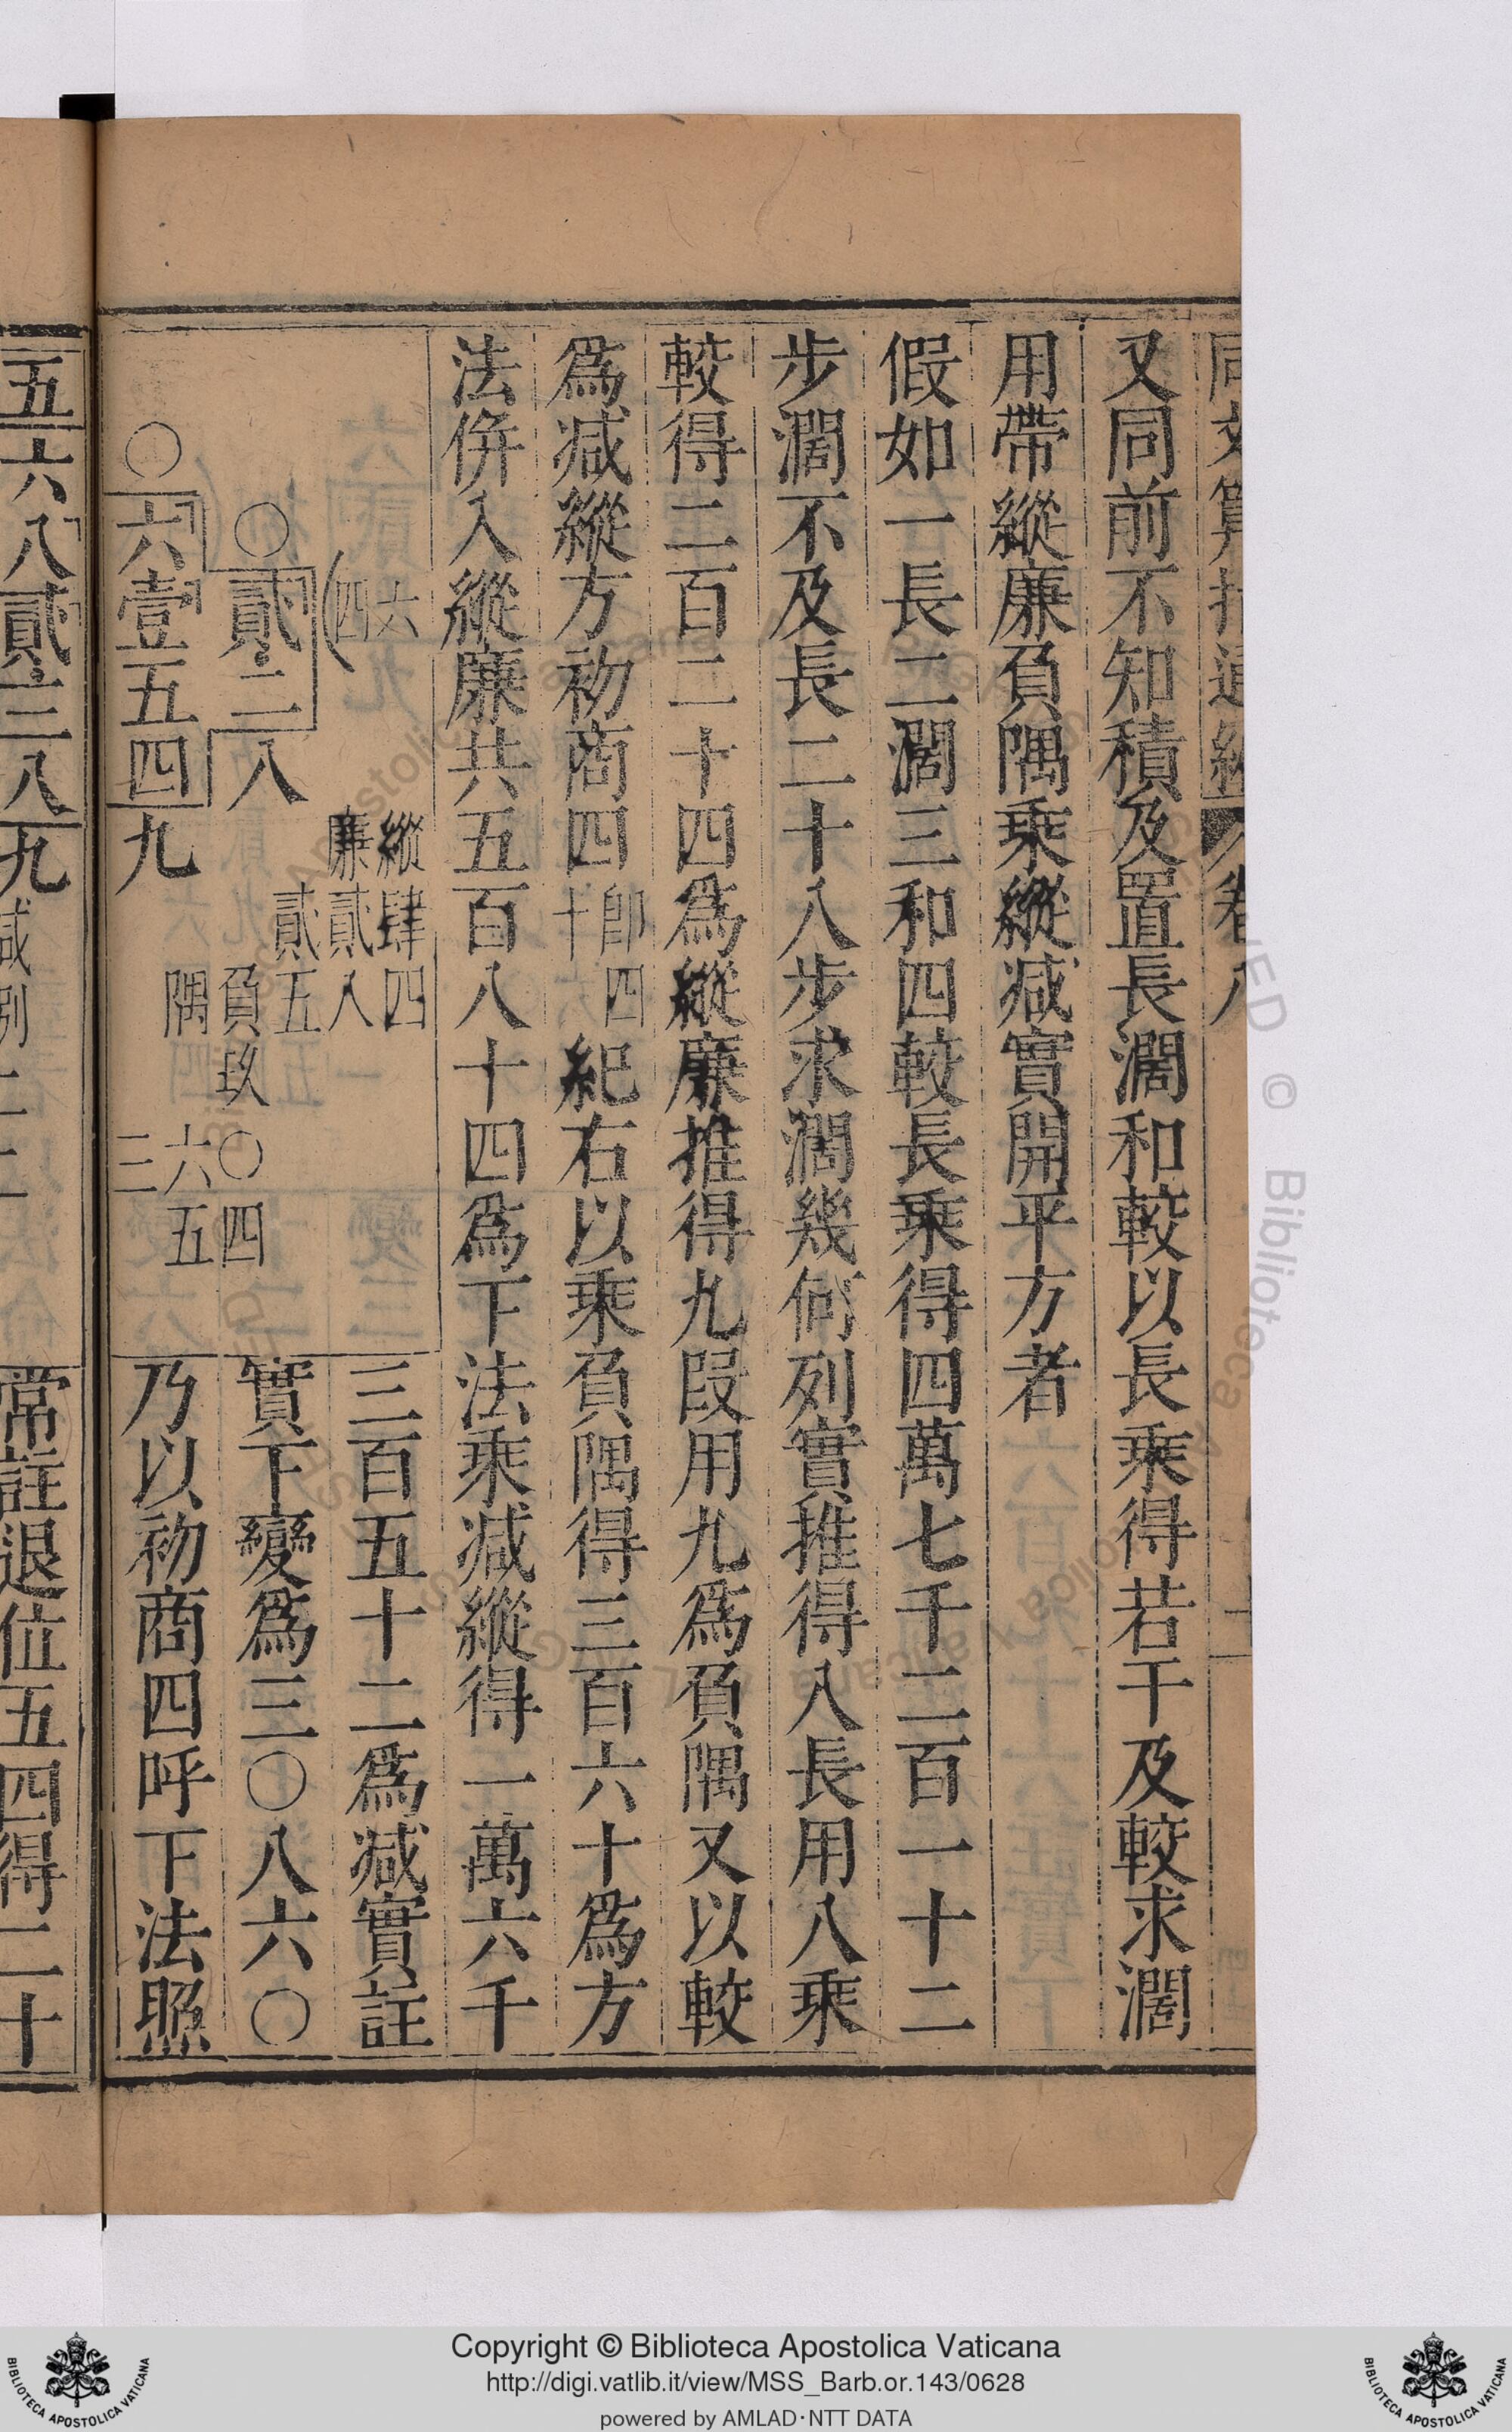 同文算指通編 卷八
又同前不知積及置長濶和較以長乘得若干及較求濶
用帶縱廉負隅乘縱减實開平方者
假如一長二濶三和四較長乘得四萬七千二百一十二
步濶不及長二十八步求濶幾何列實推得八長用八乘
較得二百二十四爲縱廉推得九段用九爲負隅又以較
爲减縱方初商四卽四十紀右以乘負隅得三百六十爲方
法併入縱廉共五百八十四爲下法乘减縱得一萬六千
三百五十二爲减實註
實下變爲三〇八六〇
乃以初商四呼下法照
六
四
縱肆四
廉貳八
〇貳二八
貳五
負玖〇四
隅六五
〇六壹五四九
三
五六八貳三八九
常註退位五四得二十
Copyright © Biblioteca Apostolica Vaticana
http://digi.vatlib.it/view/MSS_Barb.or.143/0628
powered by AMLAD·NTT DATA
BIBLIOTECA APOSTOLICA VATICANA
BIBLIOTECA APOSTOLICA VATICANA